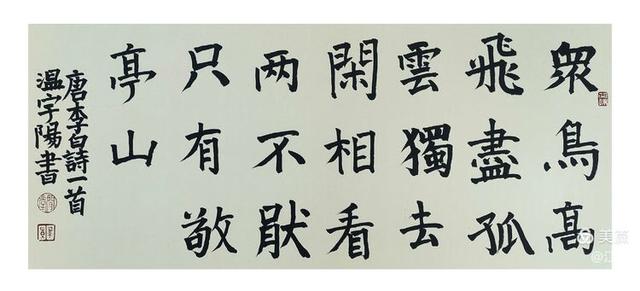 眾鳥高
飛盡孤
雲獨去
閑相看
两不猒
只有敬
亭山
唐李白詩一首
温宇陽書
美篇